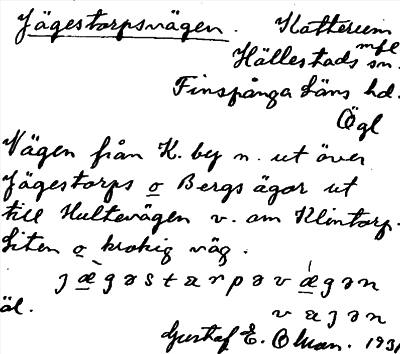 Jägestorpsvägen. Katherem
mfl
Hällestads sn.
Finspånga läns hd.
Ögl
Vägen från K. by n. ut över
Jägestorps o Bergs ägor ut
till Hultevägen v. om Klintorp.
Liten o krokig väg.
jæ̀gəstarpəvǽgən
vajən
äl.
Gustaf E. Olson. 1931